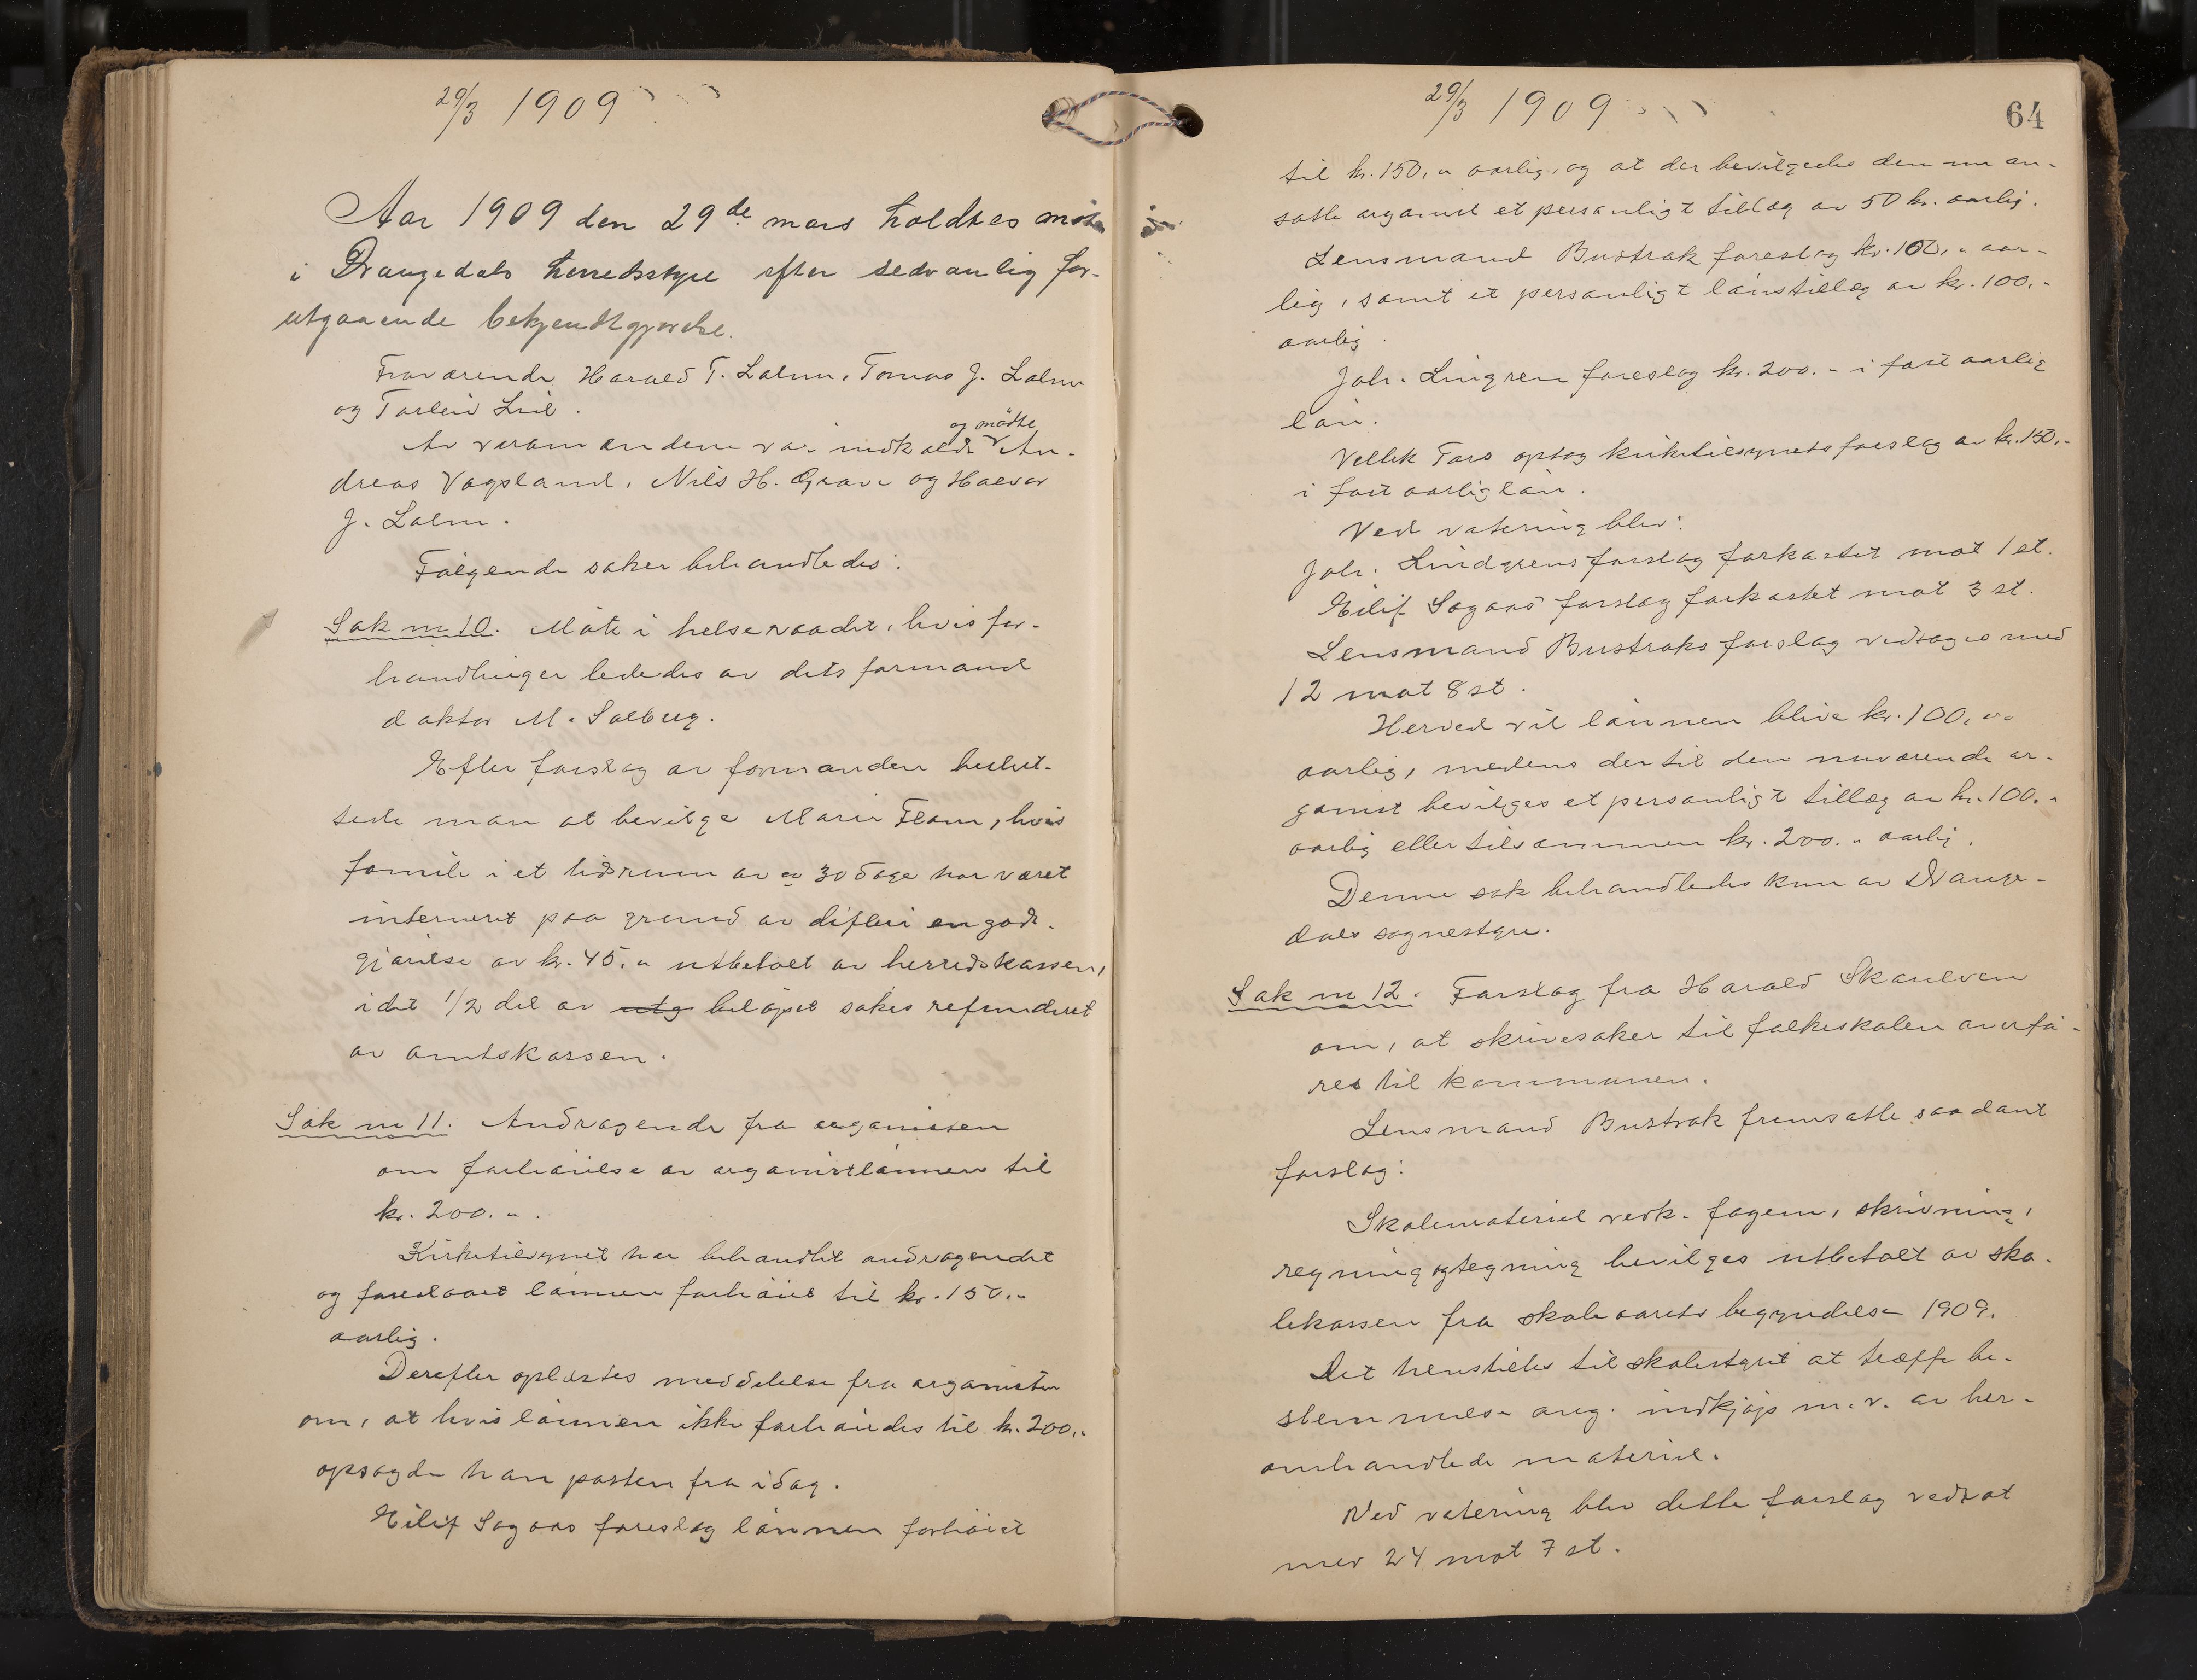 29/3 1909
Aar 1909 den 29de mars holdtes møte
i Drangedals herredsstyre efter sedvanlig for-
utgaaende bekjendtgjørelse.
Fraværende Harald T. Lalum, Tomas J. Lalum
og Torleiv Lid.
og mødte
Av varamændene var indkaldt An-
dreas Vogsland, Nils H. Grave og Halvor
J. Lalum.
Følgende saker behandledes:
Sak nr 10. Møte i helseraadet, hvis for-
handlinger lededes av dets formand
doktor M. Solberg.
Efter forslag av formanden beslut-
tede man at bevilge Marie Flaum, hvis
familie i et tidsrum av ca 30 dage har været
interneret paa grund av difteri en godt-
gjørelse av kr. 45,- utbetalt av herredskassen,
idet 1/2 del av utg beløpet søkes refunderet
av amtskassen.
Sak nr 11. Andragende fra organisten
om forhøielse av organistlønnen til
kr. 200.-.
Kirketilsynet har behandlet andragendet
og foreslaaet lønnen forhøiet til kr. 150,-
aarlig.
Derefter oplæstes meddelelse fra organisten
om, at hvis lønnen ikke forhøiedes til kr. 200,-
opsagde han posten fra idag.
Eilif Sogaas foreslog lønnen forhøiet
29/3 1909
64
til kr. 150,- aarlig, og at der bevilgedes den nu an-
satte organist et personligt tillæg av 50 kr. aarlig.
Lensmand Bustrak foreslog kr. 100,- aar-
lig, samt et personligt lønstillæg av kr. 100.-
aarlig.
Joh. Lingren foreslog kr. 200.- i fast aarlig
løn.
Vellek Tors optog kirketilsynets forslag av kr. 150.-
i fast aarlig løn.
Ved votering blev:
Joh. Lindgrens forslag forkastet mot 1 st.
Eilif Sogaas forslag forkastet mot 3 st.
Lensmand Bustraks forslag vedtoges med
12 mot 8 st.
Herved vil lønnen blive kr. 100,-
aarlig, medens der til den nuværende or-
ganist bevilges et personligt tillæg av kr. 100.-
aarlig eller tilsammen kr. 200.- aarlig.
Denne sak behandledes kun av Drange-
dals sognestyre.
Sak nr 12. Forslag fra Harald
om, at skrivesaker til folkeskolen overfø-
res til kommunen.
Lensmand Bustrak fremsatte saadant
forslag:
Skolemateriel vedk. fagene, skrivning,
regning og tegning bevilges utbetalt av sko-
lekassen fra skoleaarets begyndelse 1909.
Det henstilles til skolestyret at træffe be-
stemmelse ang. indkjøp m.v. av her-
omhandlede materiel.
Ved votering blev dette forslag vedtat
med 24 mot 7 st.